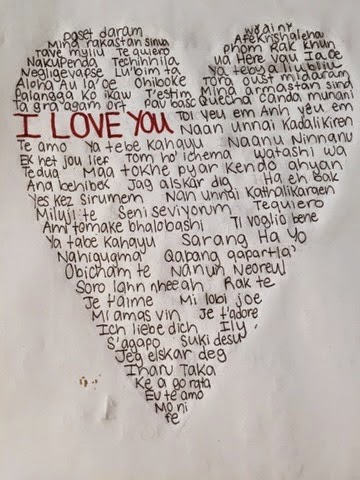 Doset daram
Mina rakastan sinua
Tave myliu Te quiero
Nakupenda Techihhila
Negligevapse Lu'bim ta
Aloha Au Ia 'oe Ohiboke
Palangga Ko ikaw Jestim
Ta gra agam ort Pav basc
I LOVE YOU
Afekrishaleha
phom Rak khun
ua Here Vau Ia Oe
Ya tebya liubliu
Tora dust midaram
Mina armastan sind
Quecha canda munani
Toi yeu em Anh yeu em
Naan Unnai Kadalikiren
Te amo Ya tebe kahayu Naanu Ninnanu
Ek het jou lief Tom ho' ichema Watashi wa
Tedua Maa tokhe pyar kendo ahyan
Ana behibek Jag alskar dig Ha eh Bak
Yes kez sirumem Nan unnai Kathalikaraen
Miluji te Seni seviyorum Tequiero
Ami tomake bhalobashi Ti voglio bene
Ya tabe Kahayu Sarang Ha Yo
Nahigugma Qabang qapartla
Obicham te Nanun Neoreul
Soro lahn nheeah Rak te
Je t'aime Mi lobi joe
Mi amas vin Je t'adore
Ich liebe dich Ily
S'agapo Suki desu
Jeg elskar deg
Inaru Taka
Ke a go rata
Eu te amo
Mo ni
fe